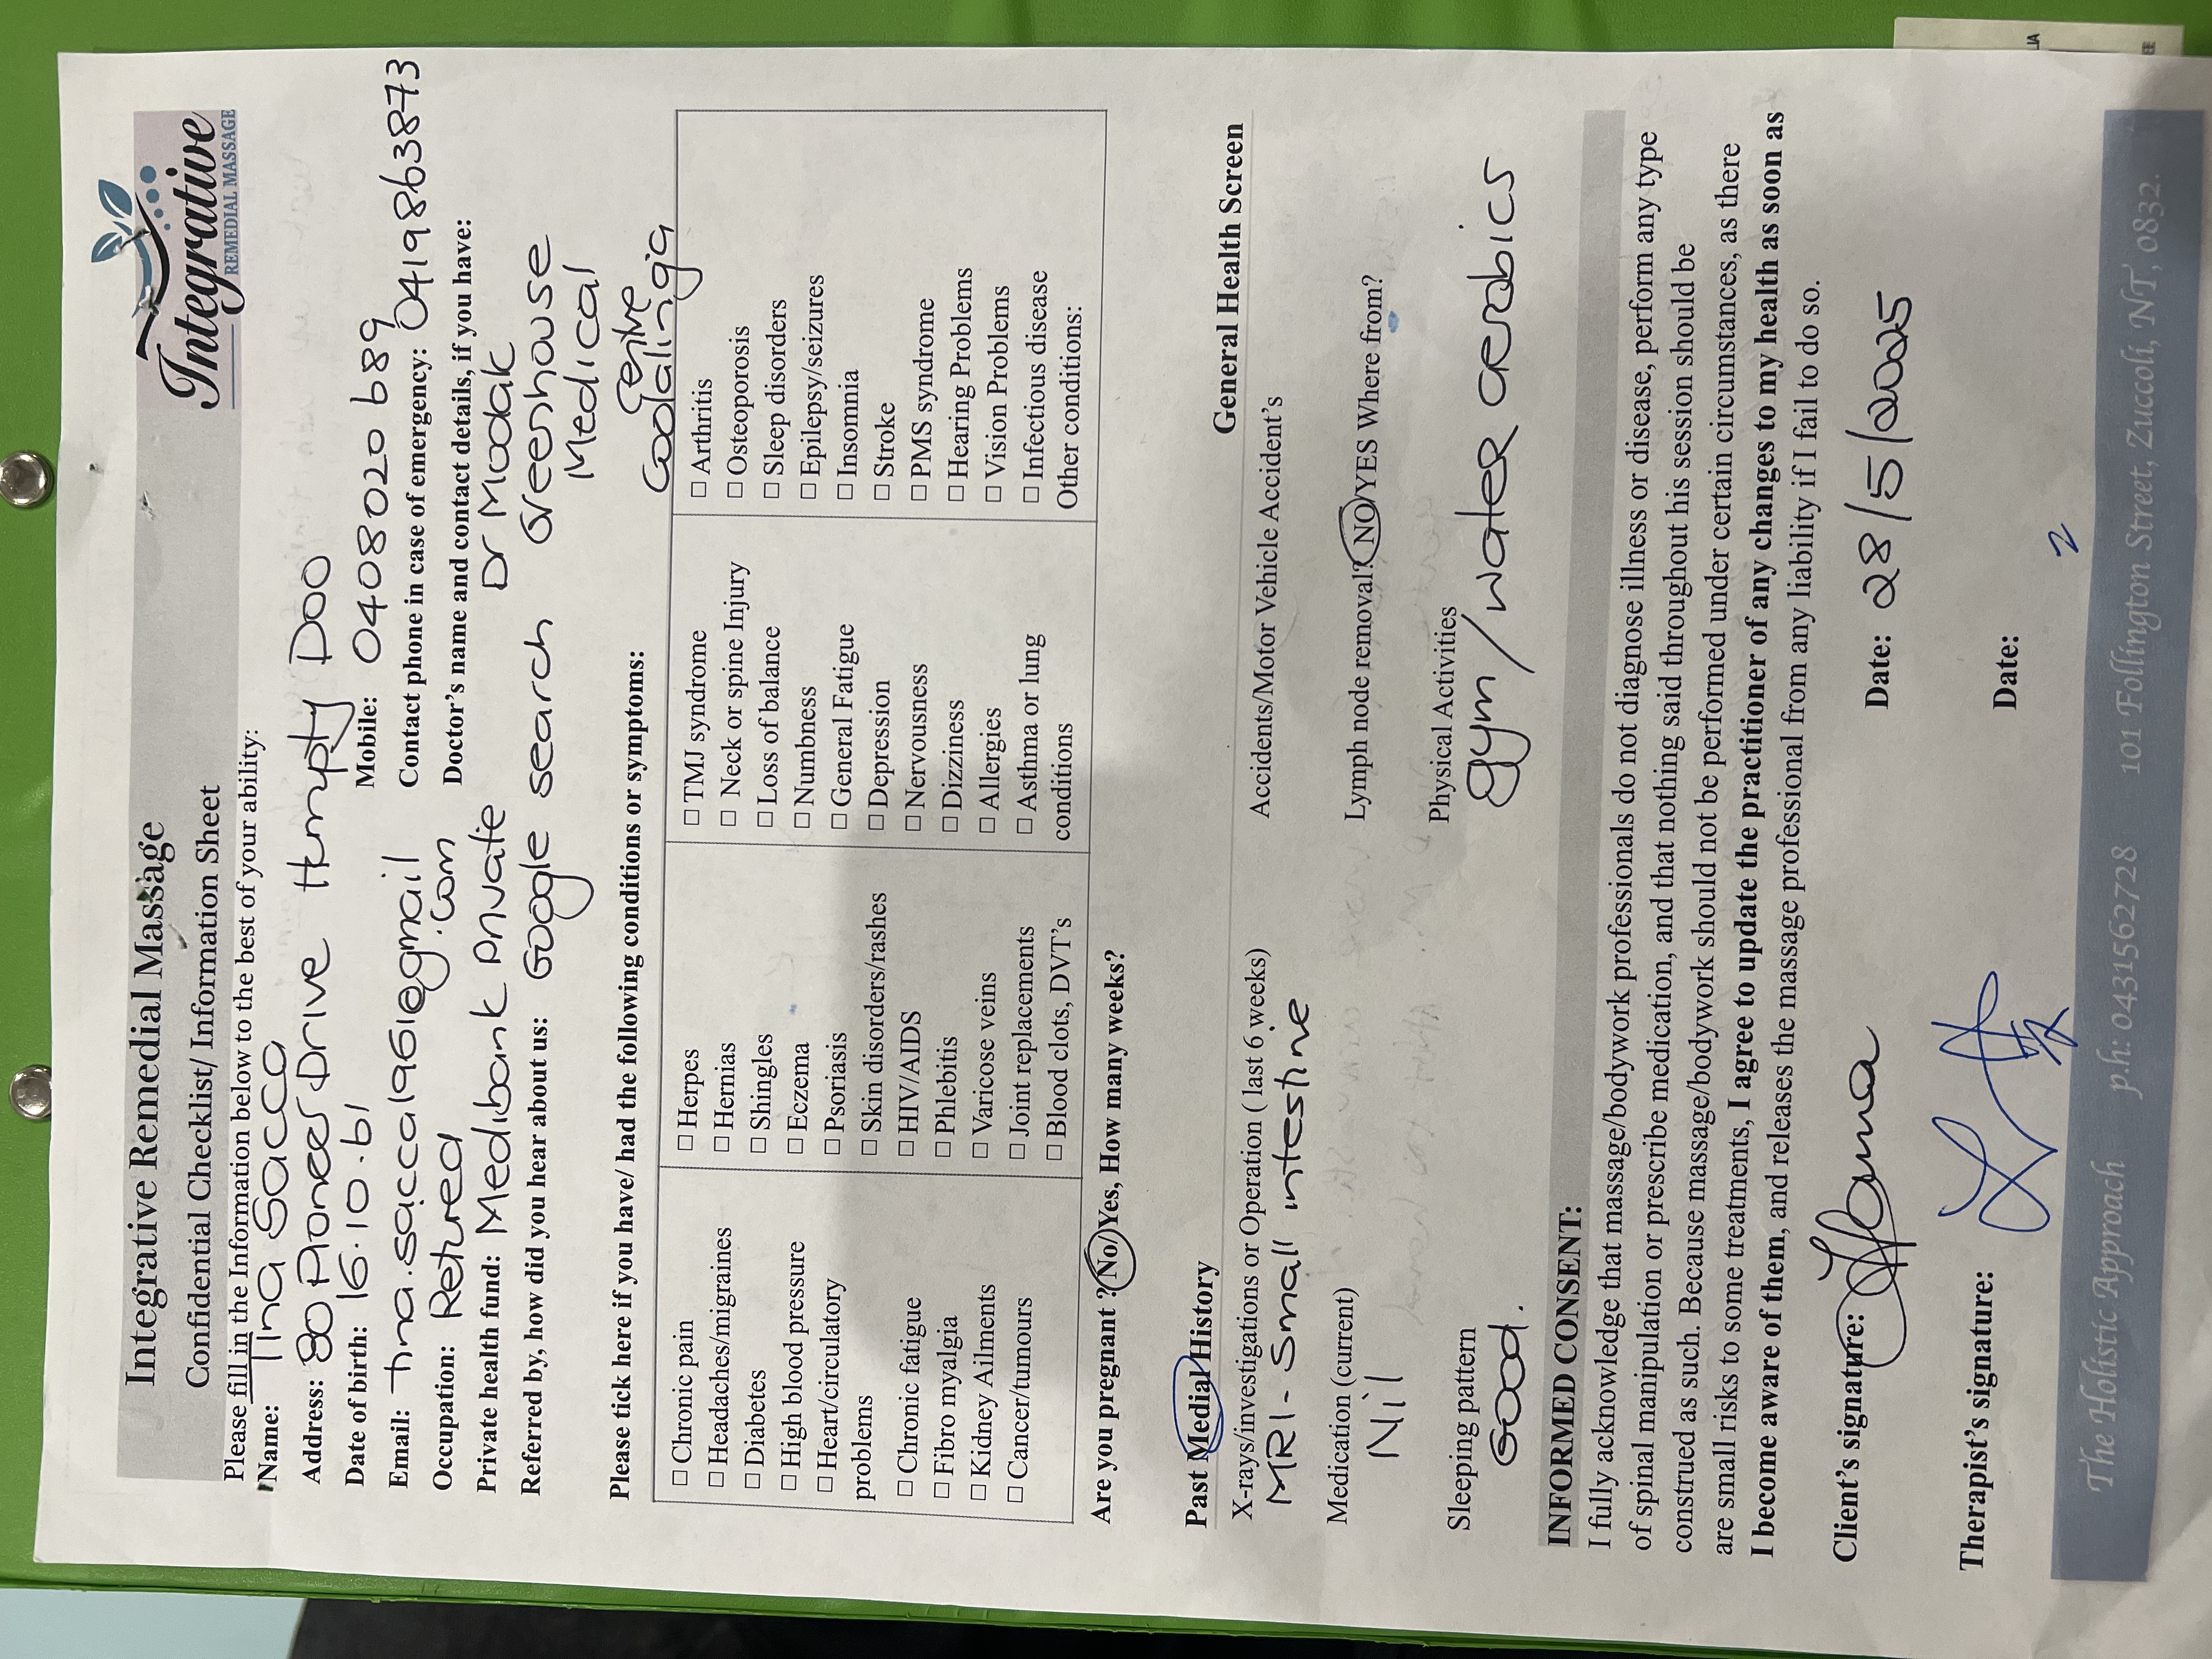 Integrative Remedial Massage
Confidential Checklist/ Information Sheet
Integrative
REMEDIAL MASSAGE
Please fill in the Information below to the best of your ability:
Name: Tina Sacca
Address: 80 Pioneer Drive Humpty Doo
Date of birth: 16.10.61
Mobile: 0408020689
Email: tina.sacca1961@gmail.com
Contact phone in case of emergency: 0419863873
Occupation: Retired
Doctor's name and contact details, if you have:
Dr Modak
Greenhouse
Medical
Centre
Coolalinga
Private health fund: Medibank Private
Referred by, how did you hear about us: Google search
Please tick here if you have/ had the following conditions or symptoms:
☐ Chronic pain
☐ Headaches/migraines
☐ Diabetes
☐ High blood pressure
☐ Heart/circulatory
problems
☐ Chronic fatigue
☐ Fibro myalgia
☐ Kidney Ailments
☐ Cancer/tumours
☐ Herpes
☐ Hernias
☐ Shingles
☐ Eczema
☐ Psoriasis
☐ Skin disorders/rashes
☐ HIV/AIDS
☐ Phlebitis
☐ Varicose veins
☐ Joint replacements
☐ Blood clots, DVT's
☐ TMJ syndrome
☐ Neck or spine Injury
☐ Loss of balance
☐ Numbness
☐ General Fatigue
☐ Depression
☐ Nervousness
☐ Dizziness
☐ Allergies
☐ Asthma or lung
conditions
☐ Arthritis
☐ Osteoporosis
☐ Sleep disorders
☐ Epilepsy/seizures
☐ Insomnia
☐ Stroke
☐ PMS syndrome
☐ Hearing Problems
☐ Vision Problems
☐ Infectious disease
Other conditions:
Are you pregnant ?No/Yes, How many weeks?
Past Medial History
General Health Screen
X-rays/investigations or Operation ( last 6 weeks)
MRI - Small intestine
Accidents/Motor Vehicle Accident's
Medication (current)
Nil
Lymph node removal? NO/YES Where from?
Sleeping pattern
Good.
Physical Activities
gym/water aerobics
INFORMED CONSENT:
I fully acknowledge that massage/bodywork professionals do not diagnose illness or disease, perform any type
of spinal manipulation or prescribe medication, and that nothing said throughout his session should be
construed as such. Because massage/bodywork should not be performed under certain circumstances, as there
are small risks to some treatments, I agree to update the practitioner of any changes to my health as soon as
I become aware of them, and releases the massage professional from any liability if I fail to do so.
Client's signature:
Date: 28/5/2025
Therapist's signature:
Date:
The Holistic Approach p.h: 0431562728 101 Follington Street, Zuccoli, NT, 0832.